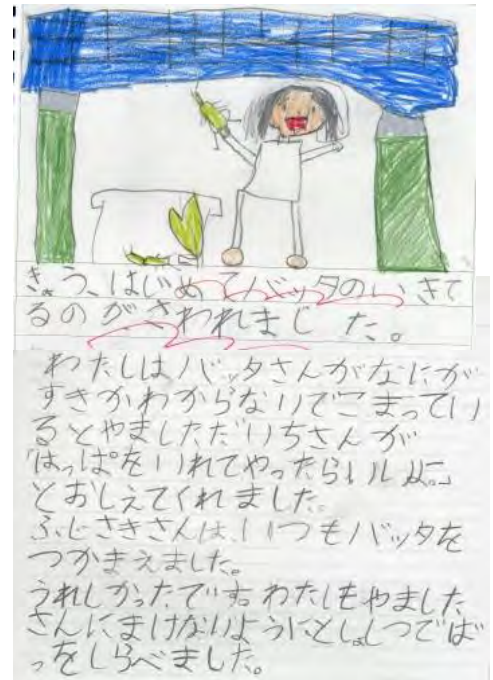 きょう、はじめてバッタのいきて
るのがさわれまじた。
わたしはバッタさんがなにが
すきかわからないでこまってい
るとやましただいちさんが
「はっぱをいれてやったらいいよ。」
とおしえてくれました。
ふじさきさんは、いつもバッタを
つかまえました。
うれしかったです。わたしもやました
さんにまけないようにとしょしつでば
っをしらべました。